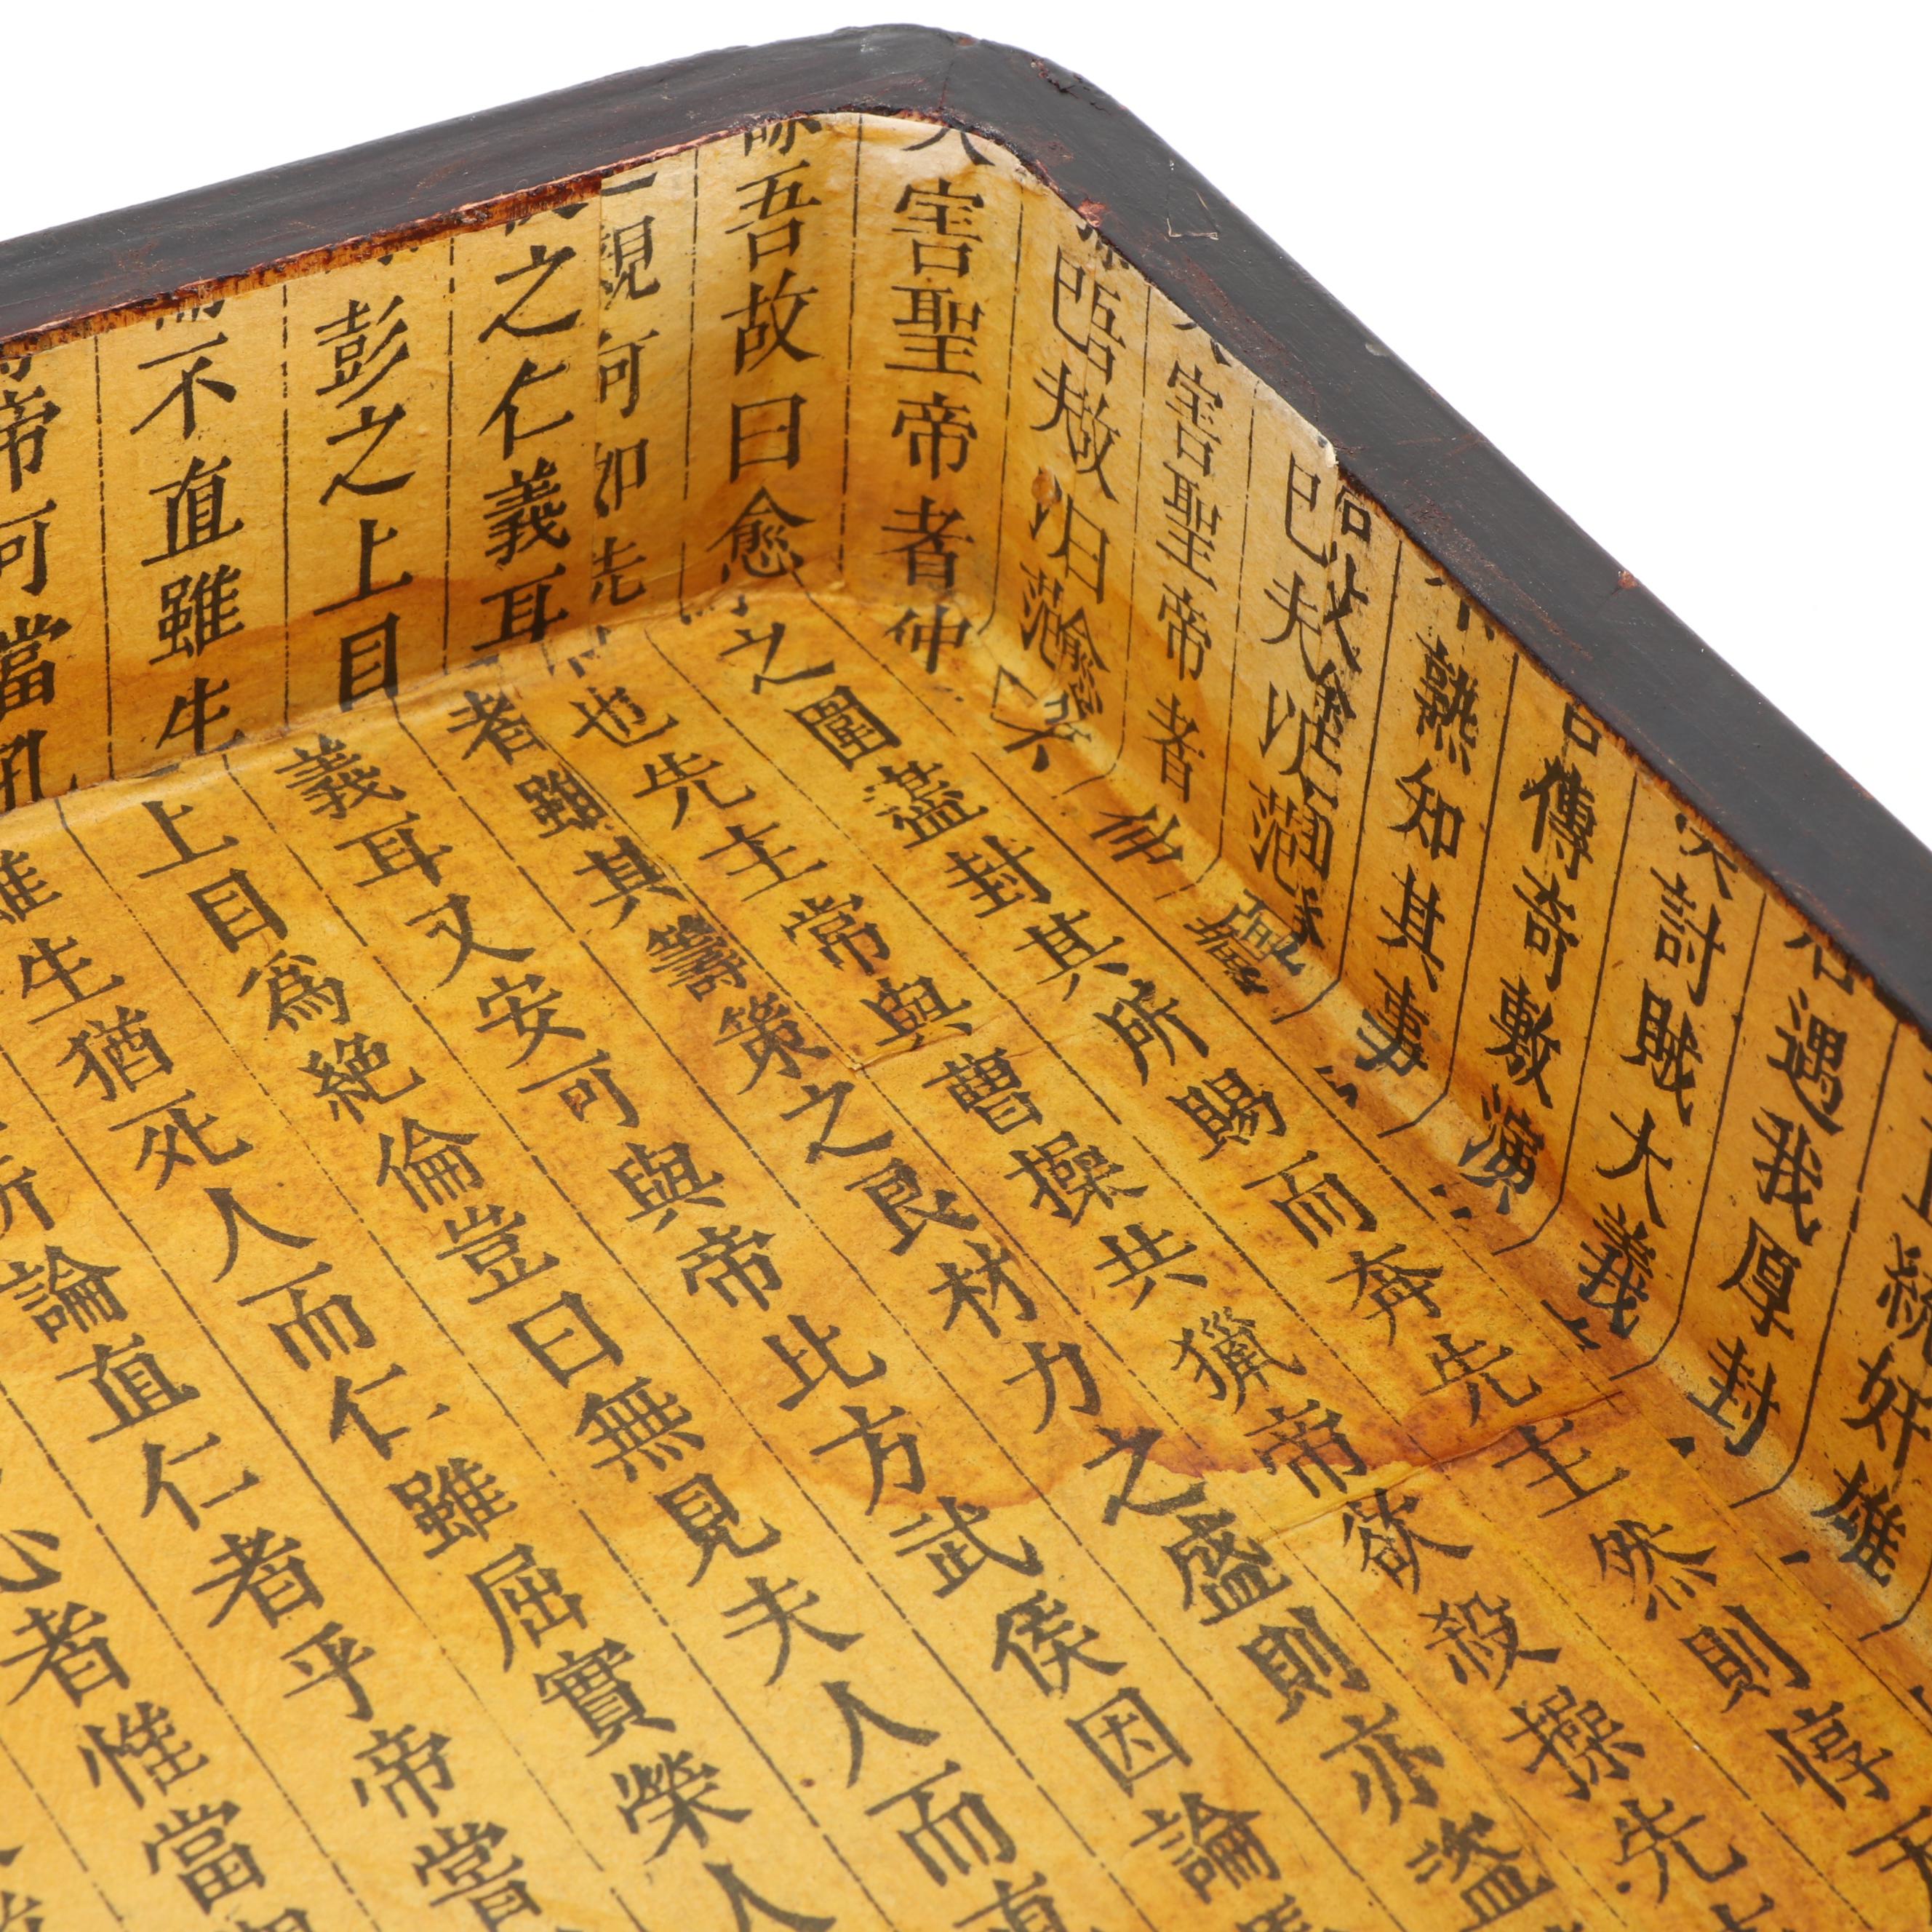 統奸雄
遇我厚封
討賊大義
傳奇敷演
熟知其事
害聖帝者
害聖帝者仲
吾故曰愈
可如先
之仁義耳
彭之上目
不直雖生
帝可當
之圍蓋封其所賜而奔先主然則惇
也先主常與曹操共獵帝欲殺操先
者雖其籌策之良材力之盛則亦盜
義耳又安可與帝比方武侯因論
上目爲絶倫豈曰無見夫人而直
生猶死人而仁雖屈實榮人
所論直仁者乎帝嘗
心者惟當